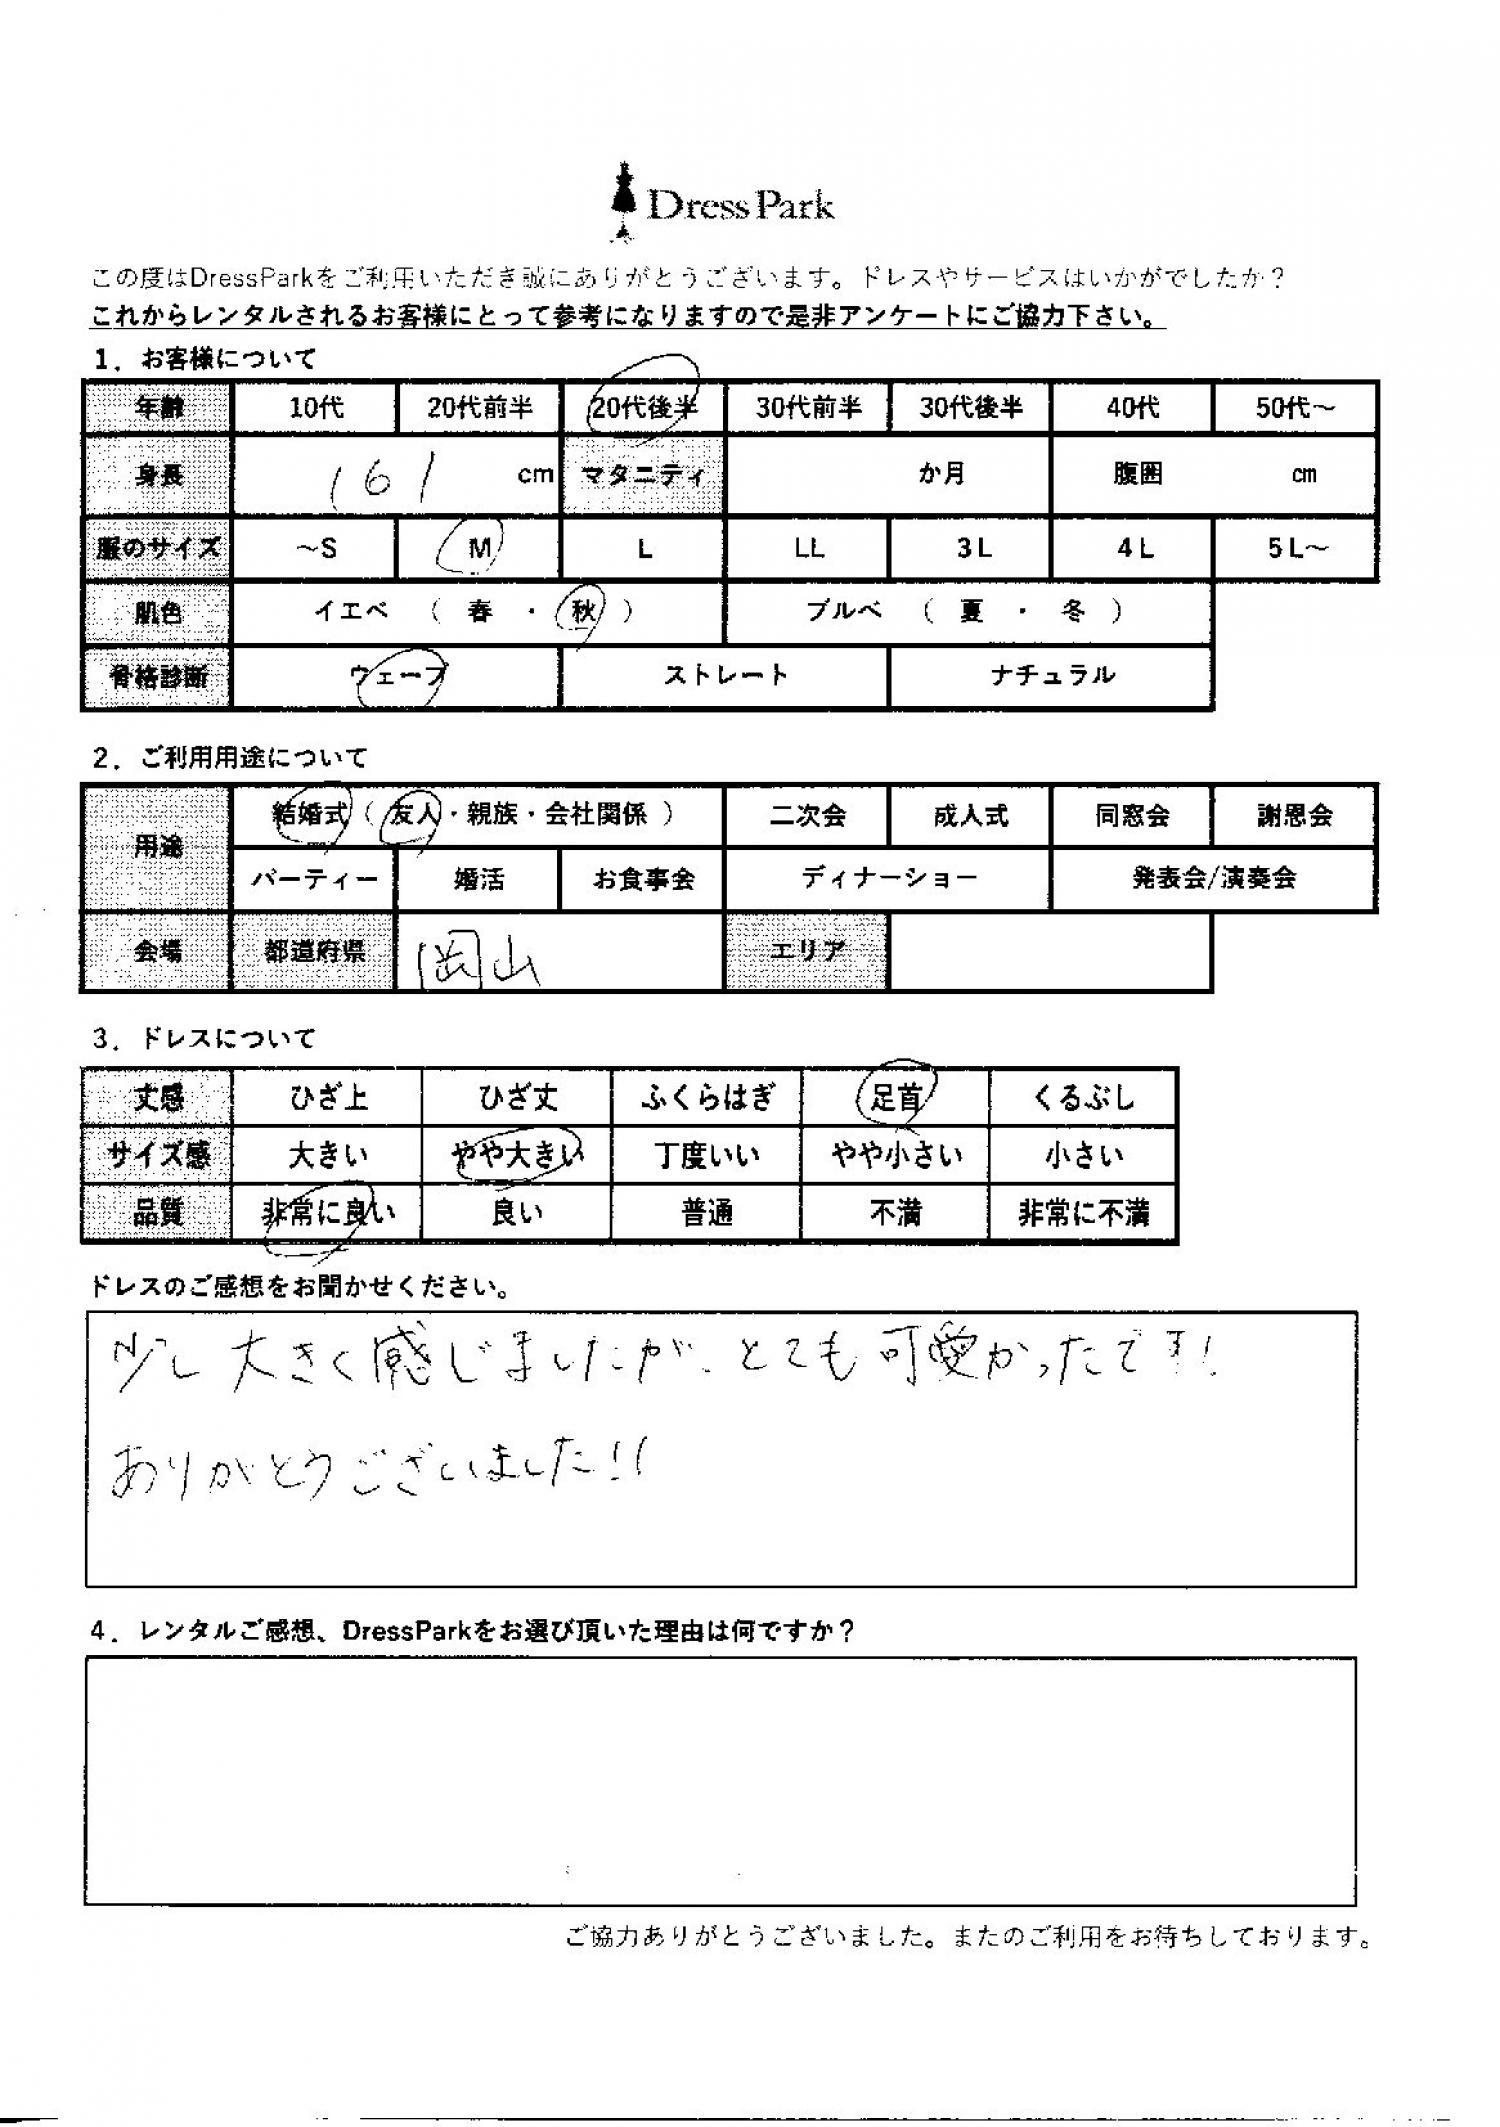 Dress Park
この度はDressParkをご利用いただき誠にありがとうございます。ドレスやサービスはいかがでしたか？
これからレンタルされるお客様にとって参考になりますので是非アンケートにご協力下さい。
1．お客様について
年齢 10代 20代前半 20代後半 30代前半 30代後半 40代 50代～
身長 161 cm マタニティ か月 腹囲 cm
服のサイズ ～S M L LL 3L 4L 5L～
肌色 イエベ （ 春 ・ 秋 ） ブルベ （ 夏 ・ 冬 ）
骨格診断 ウェーブ ストレート ナチュラル
2．ご利用用途について
用途 結婚式（ 友人・親族・会社関係 ） 二次会 成人式 同窓会 謝恩会
パーティー 婚活 お食事会 ディナーショー 発表会/演奏会
会場 都道府県 岡山 エリア
3．ドレスについて
丈感 ひざ上 ひざ丈 ふくらはぎ 足首 くるぶし
サイズ感 大きい やや大きい 丁度いい やや小さい 小さい
品質 非常に良い 良い 普通 不満 非常に不満
ドレスのご感想をお聞かせください。
少し大きく感じましたが、とても可愛かったです!!
ありがとうございました!!
4．レンタルご感想、DressParkをお選び頂いた理由は何ですか？
ご協力ありがとうございました。またのご利用をお待ちしております。